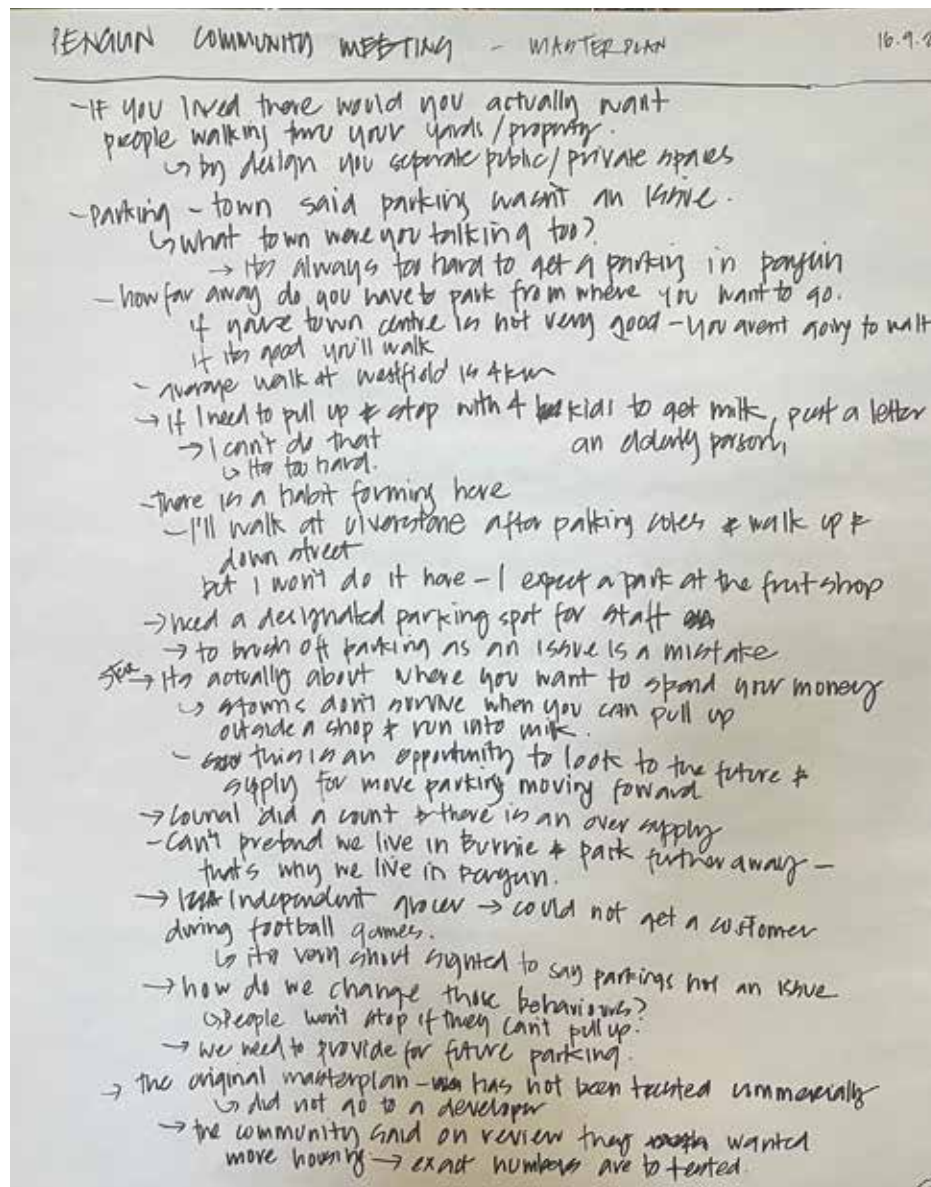 PENGUIN COMMUNITY MEETING - MASTERPLAN 16.9.2
- If you lived there would you actually want
people walking thru your yards/property.
↳ by design you separate public/private spaces
- Parking - town said parking wasn't an issue.
↳ what town were you talking too?
→ its always too hard to get a parking in penguin
- how far away do you have to park from where you want to go.
if your town centre is not very good - you arent going to walk
if its good you'll walk
- average walk at westfield is 4km
→ if I need to pull up & stop with 4 kids to get milk, post a letter
→ I can't do that an elderly person,
↳ its too hard.
- there is a habit forming here
- I'll walk at ulverstone after parking coles & walk up &
down street
but I won't do it here - I expect a park at the fruit shop
→ need a designated parking spot for staff
→ to brush off parking as an issue is a mistake
→ its actually about where you want to spend your money
↳ towns don't survive when you can pull up
outside a shop & run into milk.
- this is an opportunity to look to the future &
supply for more parking moving foward
→ Council did a count & there is an over supply
- Can't pretend we live in Burnie & park further away -
that's why we live in Penguin.
→ Independent grocer → could not get a customer
during football games.
↳ its very short sighted to say parkings not an issue
→ how do we change those behaviours?
↳ People won't stop if they can't pull up.
→ we need to provide for future parking.
→ the original masterplan - has not been tested commercially
↳ did not go to a developer
→ the community said on review they wanted
more housing → exact numbers are to tested.